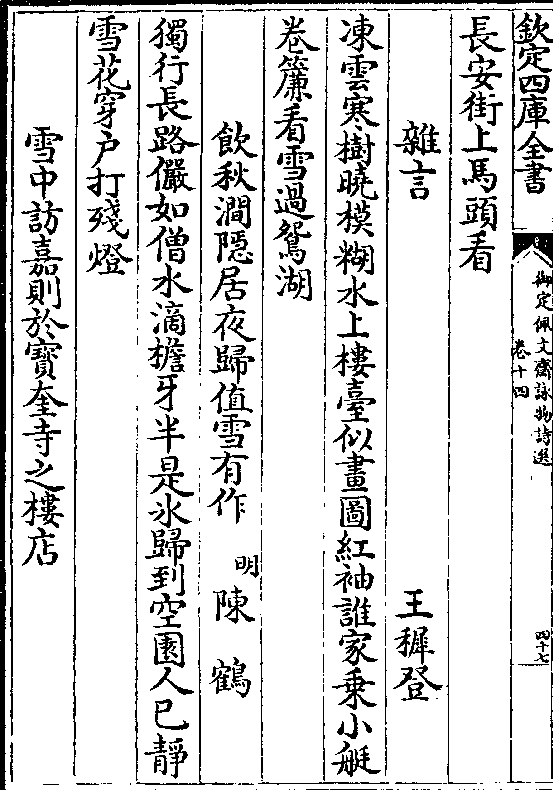 欽定四庫全書
御定佩文齋詠物詩選
卷十四
四十七
長安街上馬頭看
雜言 王穉登
凍雲寒樹曉模糊水上樓臺似畫圖紅袖誰家乘小艇
卷簾看雪過鴛湖
飲秋澗隱居夜歸值雪有作 明 陳鶴
獨行長路儼如僧水滴檐牙半是氷歸到空園人已靜
雪花穿户打殘燈
雪中訪嘉則於寶奎寺之樓店